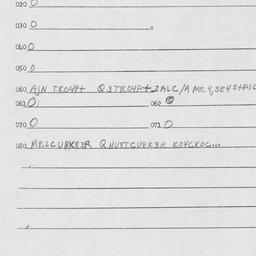 020 0
030 0
040 0
050 0
060 AJN TROYP+ Q3TROYP+ZALC/A ME4,SE4S+PIC
061 0 062 0
070 0 071 0
080 MELCU8K83R QHU8TCU8K3R KOYCKOC...